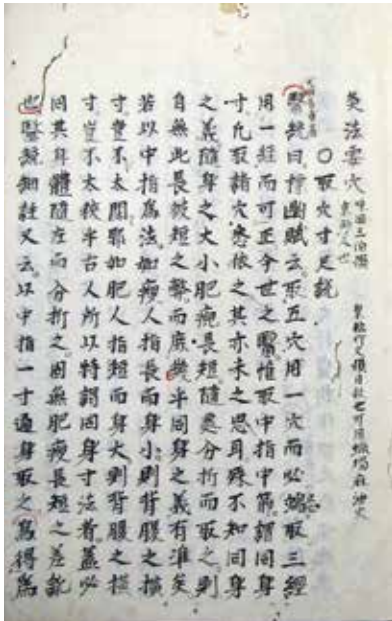 灸法雲穴
○取穴寸尺說
醫統曰標幽賦云取五穴用一穴而必端取三經
用一經而可正今世之醫惟取中指中節謂同身
寸凡取諸穴悉依之其亦未之思耳殊不知同身
之義隨身之大小肥瘦長短隨處分折而取之則
自無此長彼短之弊而庶幾乎同身之義有準矣
若以中指為法如瘦人指長而身小則背腹之橫
寸豈不太闊耶如肥人指短而身大則背腹之橫
寸豈不太狹乎古人所以特謂同身寸法者蓋必
同其身體隨在而分折之固無肥瘦長短之差訛
也醫統細註又云以中指一寸遍身取之為得為